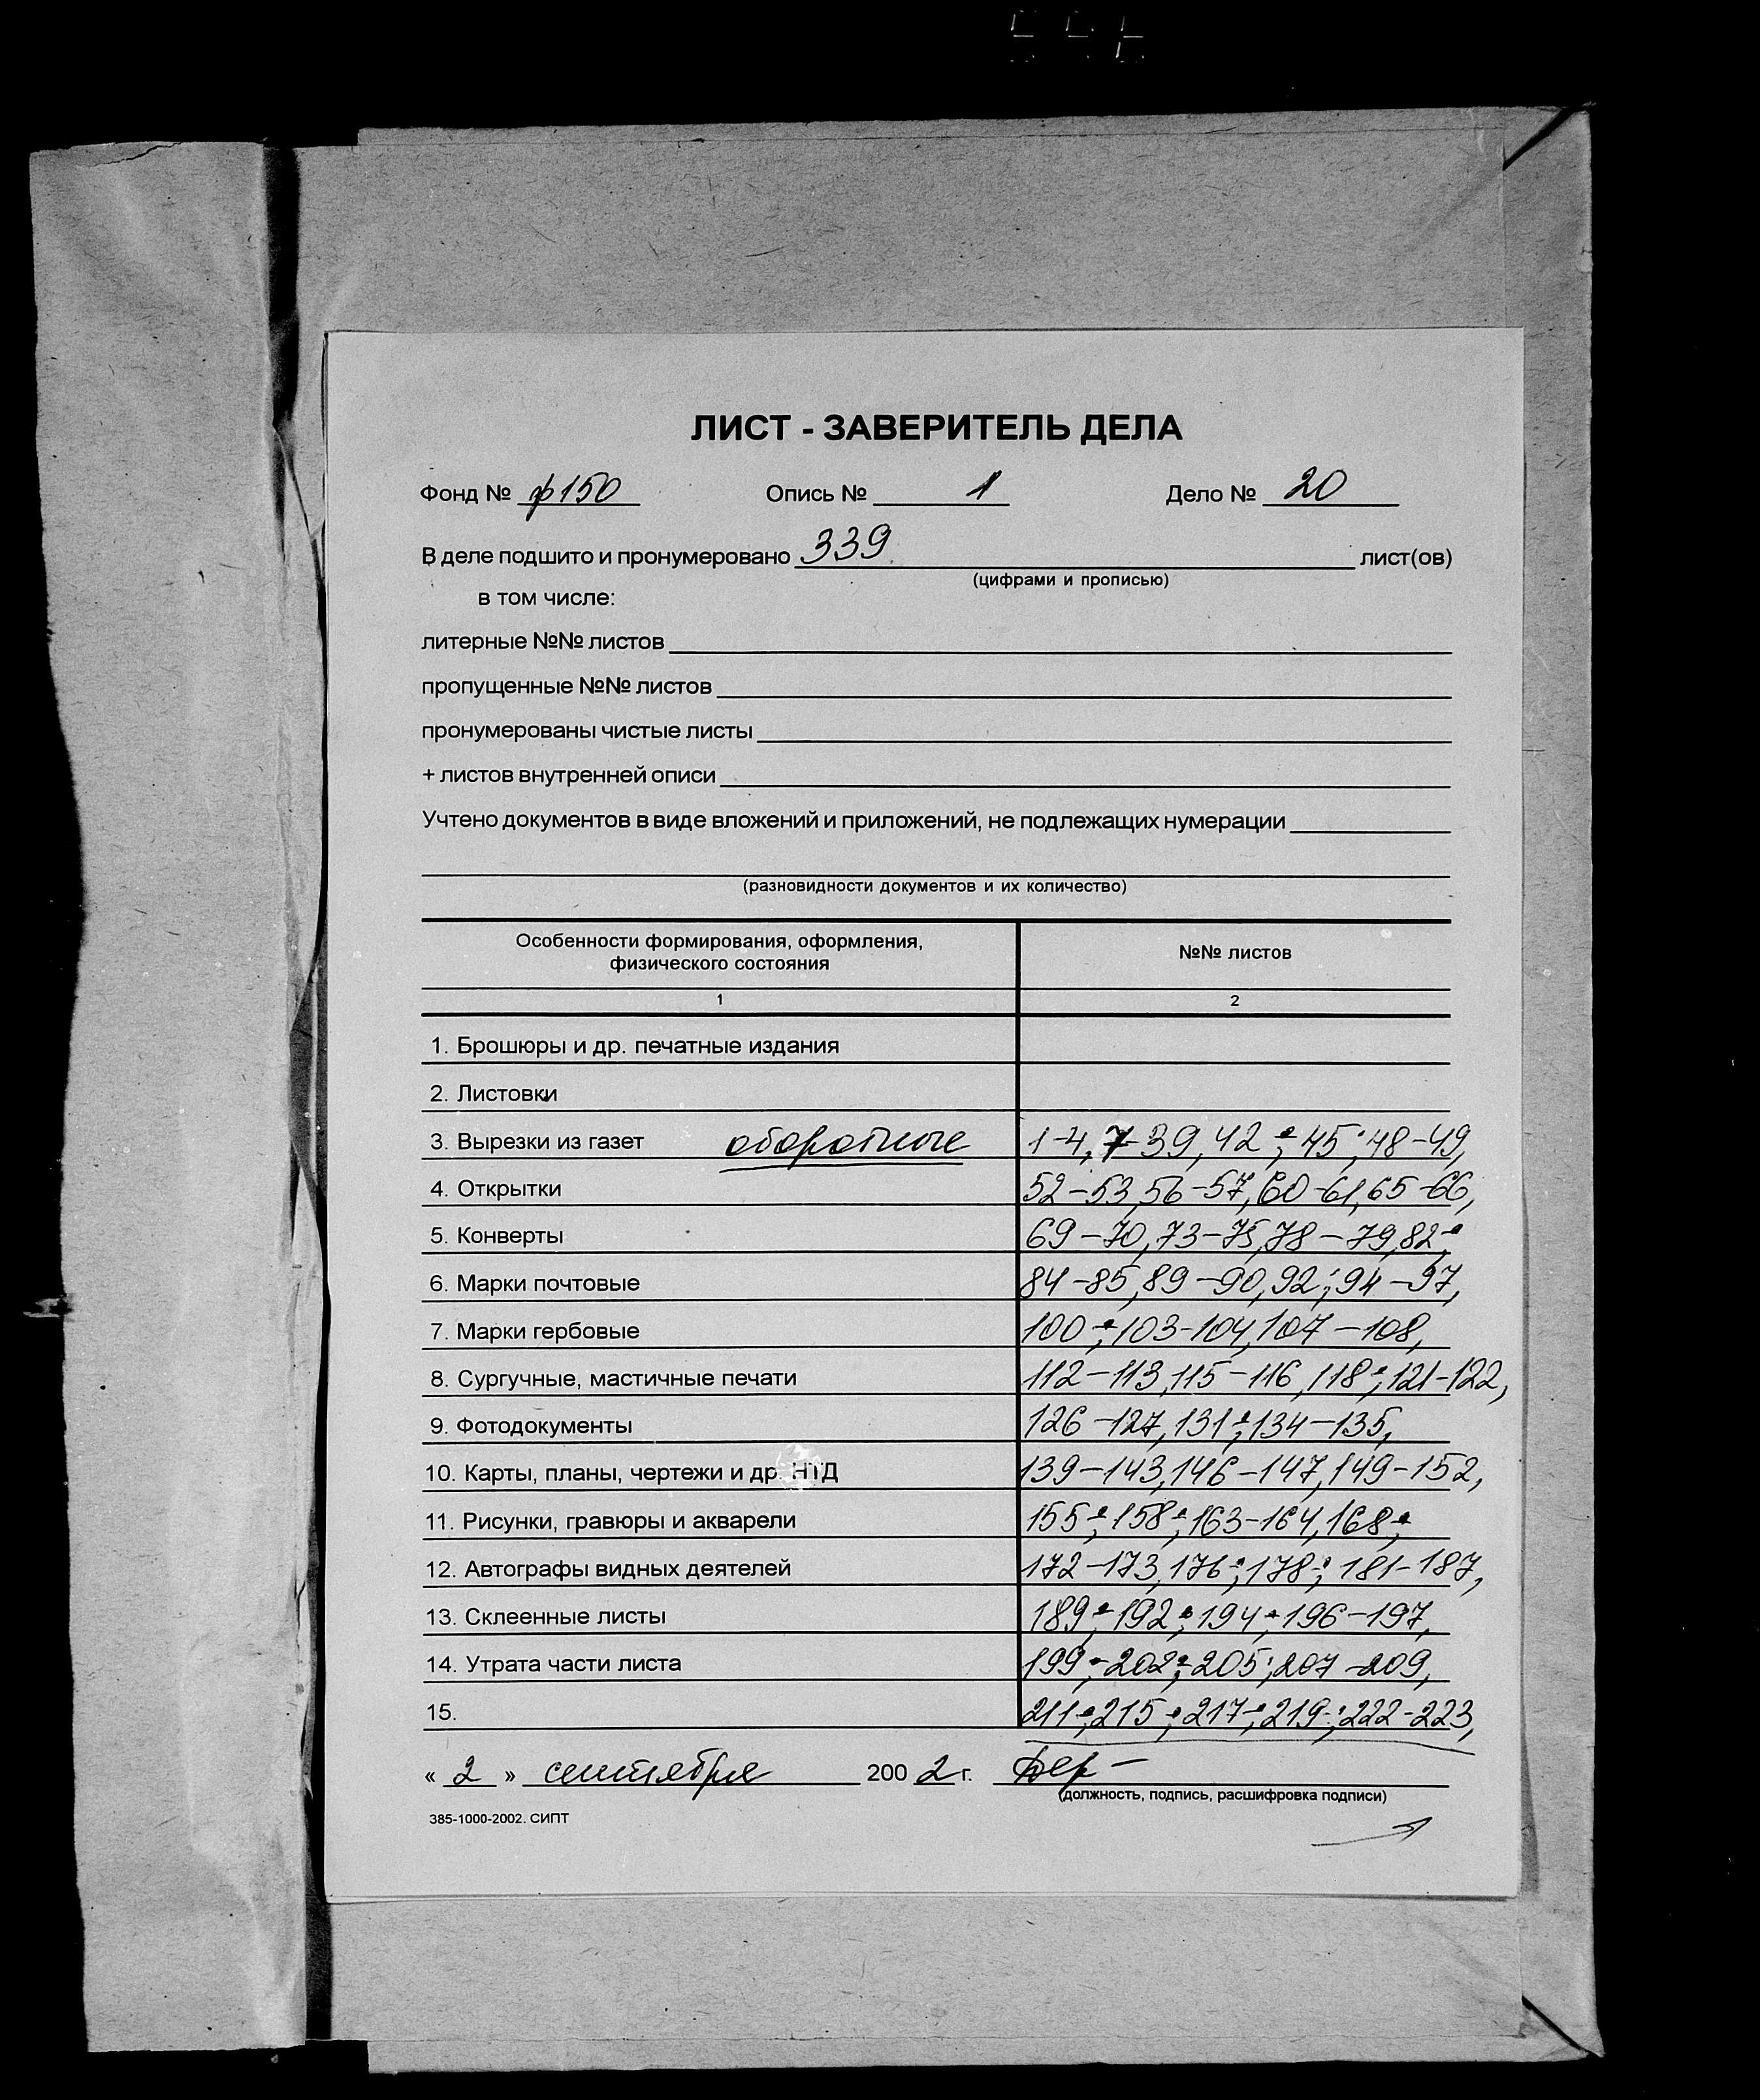 ЛИСТ - ЗАВЕРИТЕЛЬ ДЕЛА
Фонд № ф150 Опись № 1 Дело № 20
В деле подшито и пронумеровано 339 лист(ов)
(цифрами и прописью)
в том числе:
литерные №№ листов
пропущенные №№ листов
пронумерованы чистые листы
+ листов внутренней описи
Учтено документов в виде вложений и приложений, не подлежащих нумерации
(разновидности документов и их количество)
Особенности формирования, оформления,
физического состояния
№№ листов
1 2
1. Брошюры и др. печатные издания
2. Листовки
3. Вырезки из газет оборотные 1-4, 7-39, 42; 45; 48-49,
4. Открытки 52-53, 56-57, 60-61, 65-66,
5. Конверты 69-70, 73-75, 78-79, 82;
6. Марки почтовые 84-85, 89-90, 92; 94-97,
7. Марки гербовые 100; 103-104, 107-108,
8. Сургучные, мастичные печати 112-113, 115-116, 118; 121-122,
9. Фотодокументы 126-127, 131; 134-135,
10. Карты, планы, чертежи и др. НТД 139-143, 146-147, 149-152,
11. Рисунки, гравюры и акварели 155; 158; 163-164, 168;
12. Автографы видных деятелей 172-173, 176; 178; 181-187,
13. Склеенные листы 189; 192; 194; 196-197,
14. Утрата части листа 199; 202; 205; 207-209,
15. 211; 215; 217; 219; 222-223,
« 2 » сентября 2002 г.
(должность, подпись, расшифровка подписи)
385-1000-2002. СИПТ